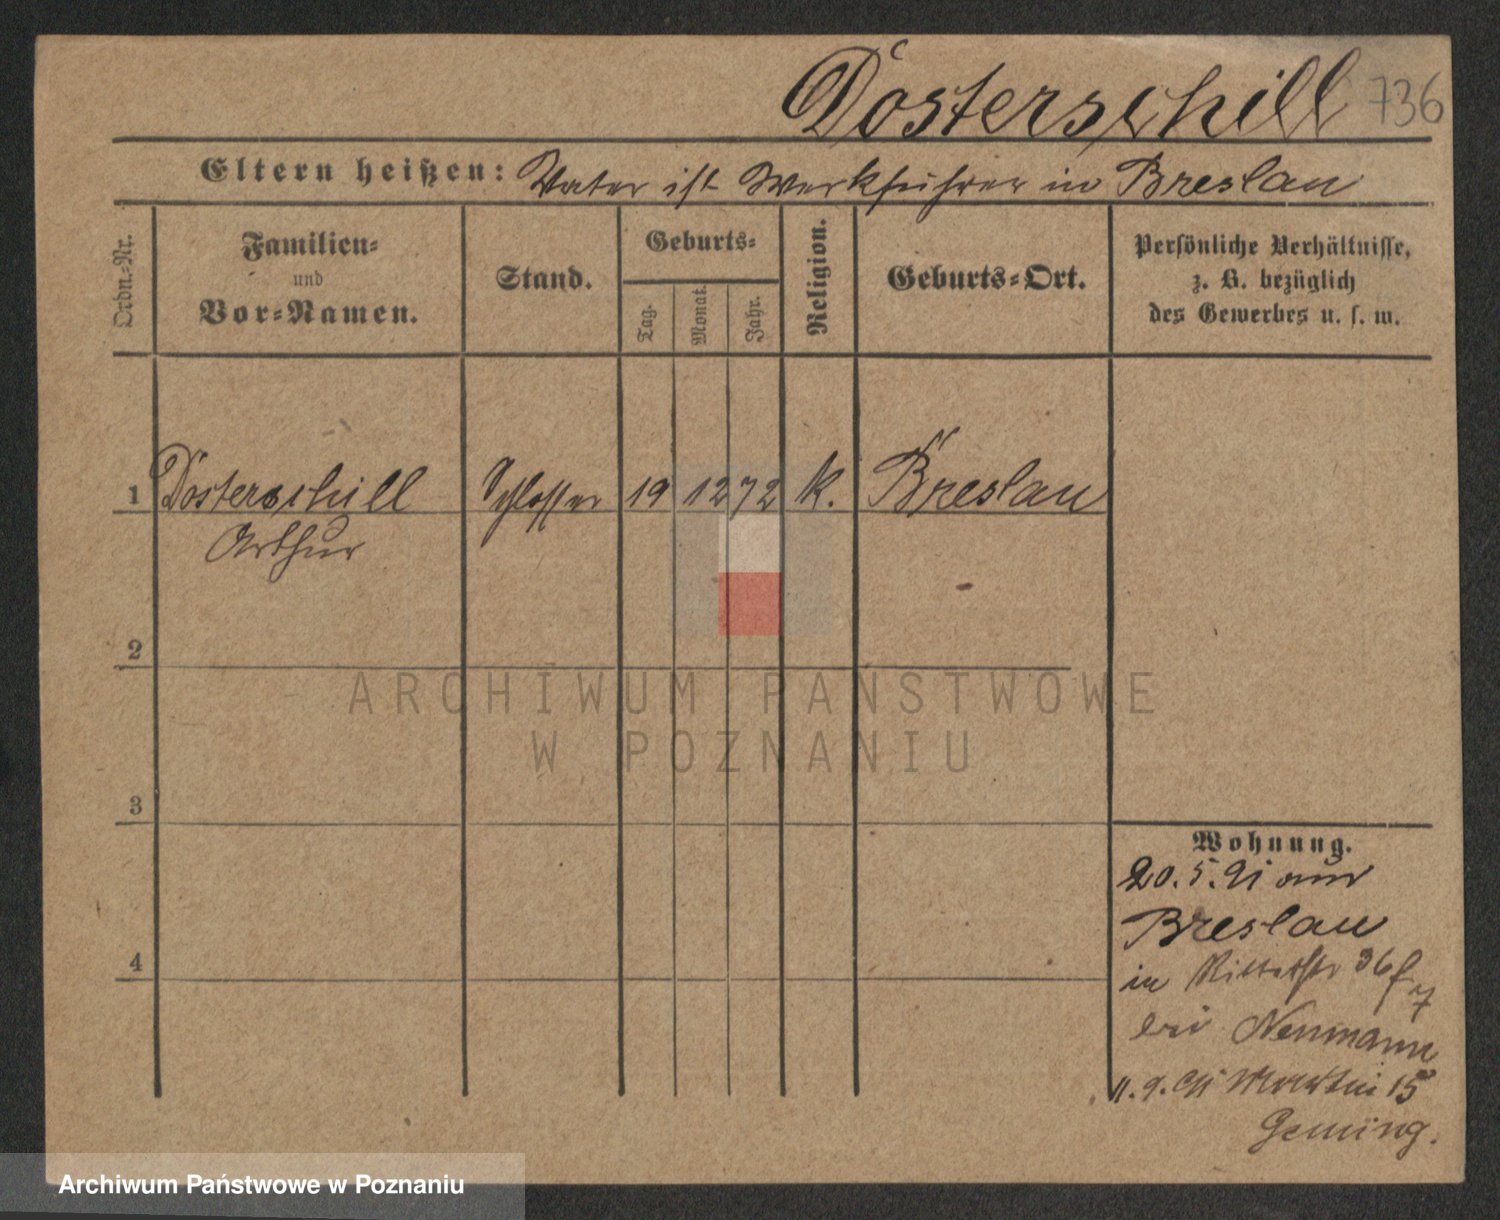 Dösterschill 736
Eltern heißen: Vater ist Werkführer in Breslau
Ordn.=Nr.
Familien=
und
Vor=Namen.
Stand.
Geburts=
Tag.
Monat.
Jahr.
Religion.
Geburts=Ort.
Persönliche Verhältnisse,
z. B. bezüglich
des Gewerbes u. s. w.
1 Dösterschill Schlosser 19 12 72 k. Breslau
Arthur
2
3
4
Wohnung.
20. 5. 91 aus
Breslau
in Ritterstr 36
bei Neumann
11. 9. 91 Martin 15
ARCHIWUM PAŃSTWOWE
W POZNANIU
Archiwum Państwowe w Poznaniu